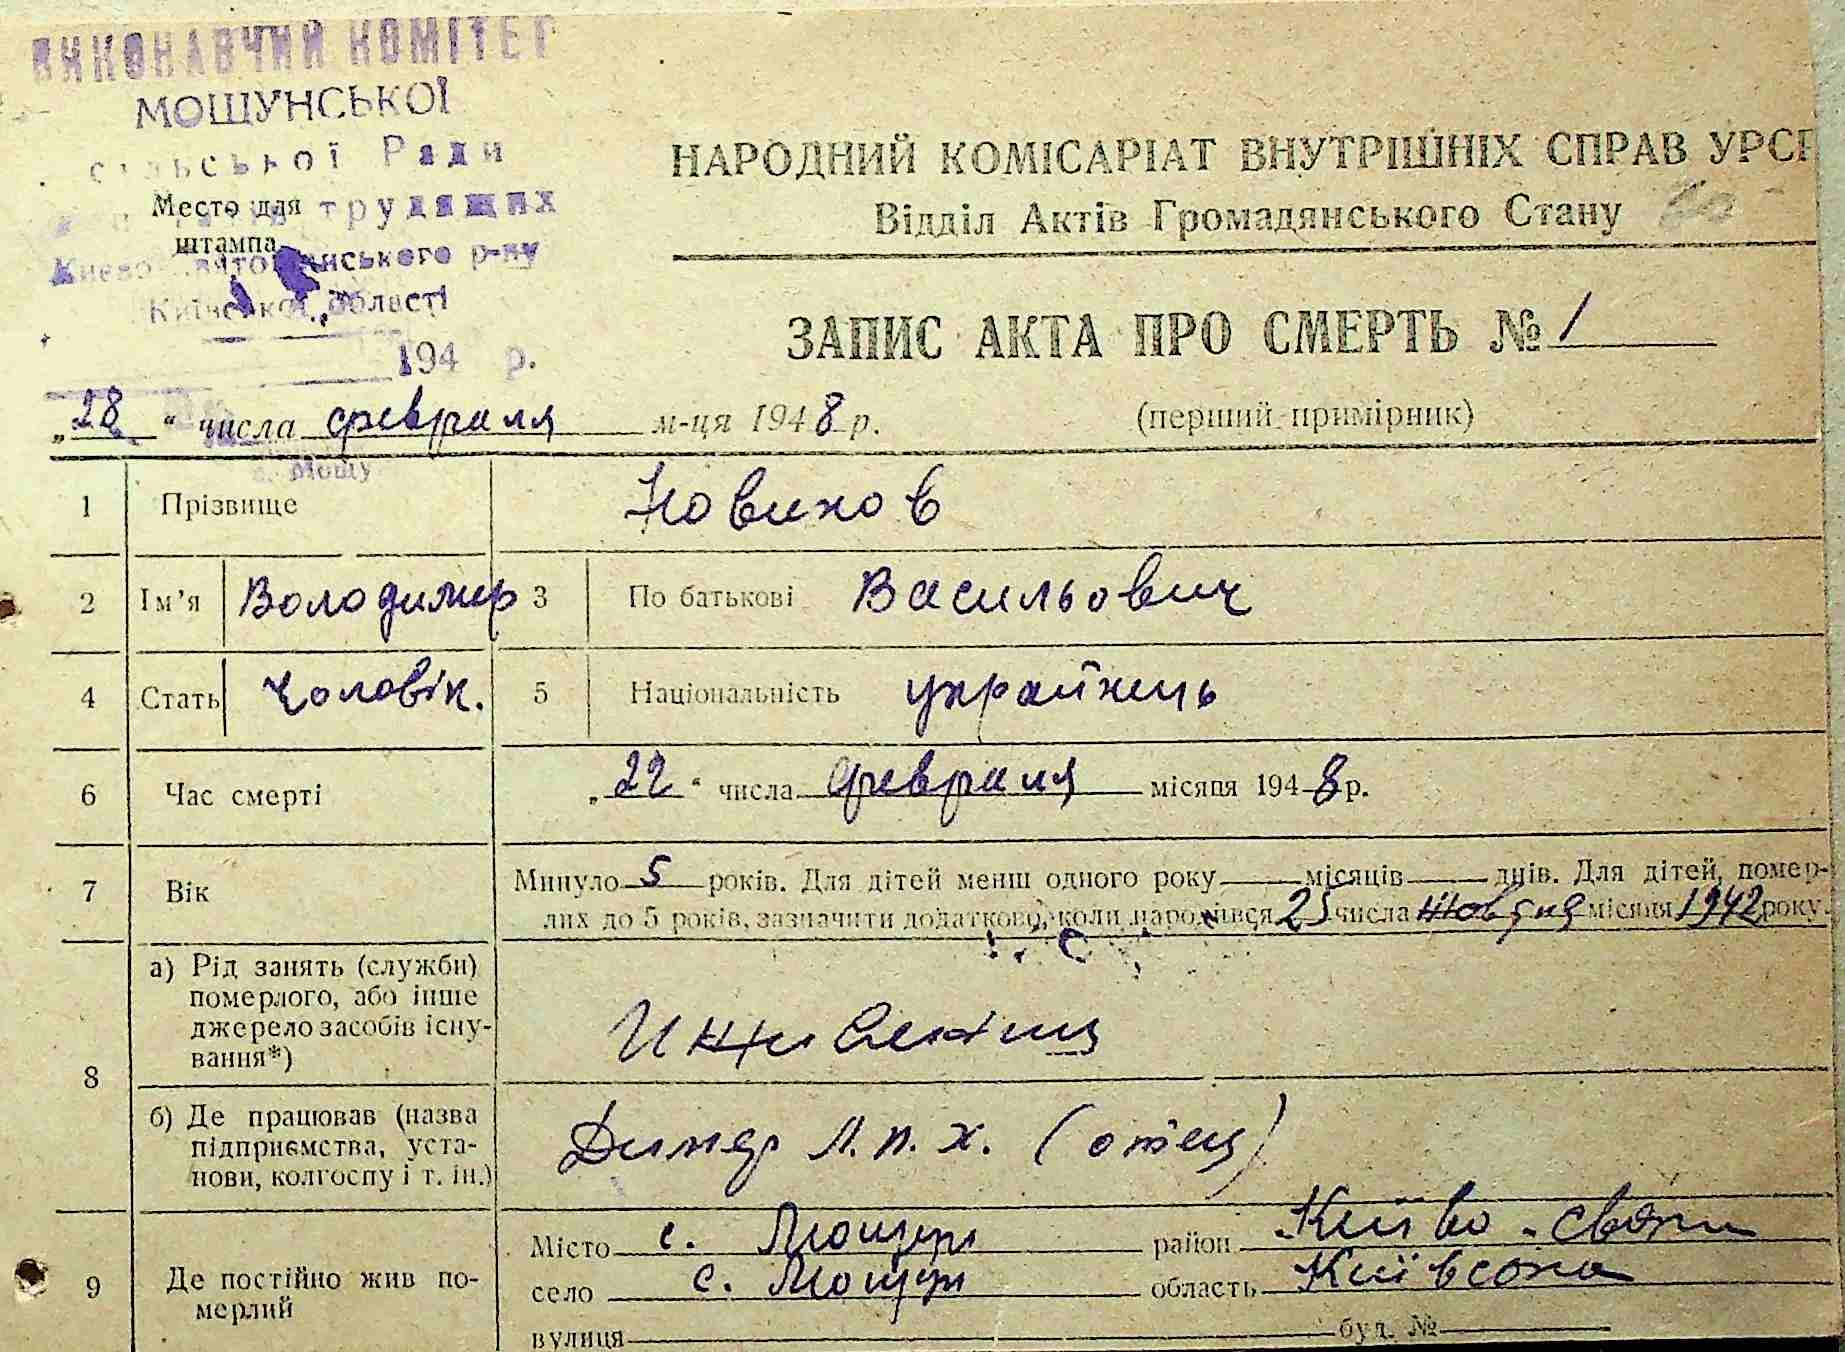 ВИКОНАВЧИЙ КОМІТЕТ
МОЩУНСЬКОЇ
сільської Ради
трудящих
Место для
штампа
Києво-Святошинського р-ну
Київської області
194 р.
НАРОДНИЙ КОМІСАРІАТ ВНУТРІШНІХ СПРАВ УРСР
Відділ Актів Громадянського Стану
ЗАПИС АКТА ПРО СМЕРТЬ № 1
„28“ числа февраля м-ця 1948 р.
(перший примірник)
Мощу
1 Прізвище Новиков
2 Ім'я Володимир 3 По батькові Васильович
4 Стать Чоловік. 5 Національність українець
6 Час смерті „22“ числа февраля місяця 1948 р.
7 Вік Минуло 5 років. Для дітей менш одного року місяців днів. Для дітей, помер-
лих до 5 років, зазначити додатково, коли народився 25 числа жовтня місяця 1942 року.
8 а) Рід занять (служби)
померлого, або інше
джерело засобів існу-
вання*)
Иждивенец
б) Де працював (назва
підприємства, уста-
нови, колгоспу і т. ін.)
Димер л.п.х. (отец)
9 Де постійно жив по-
мерлий
Місто с. Мощун район Київо-святош
село с. Мощун область Київсока
вулиця буд. №